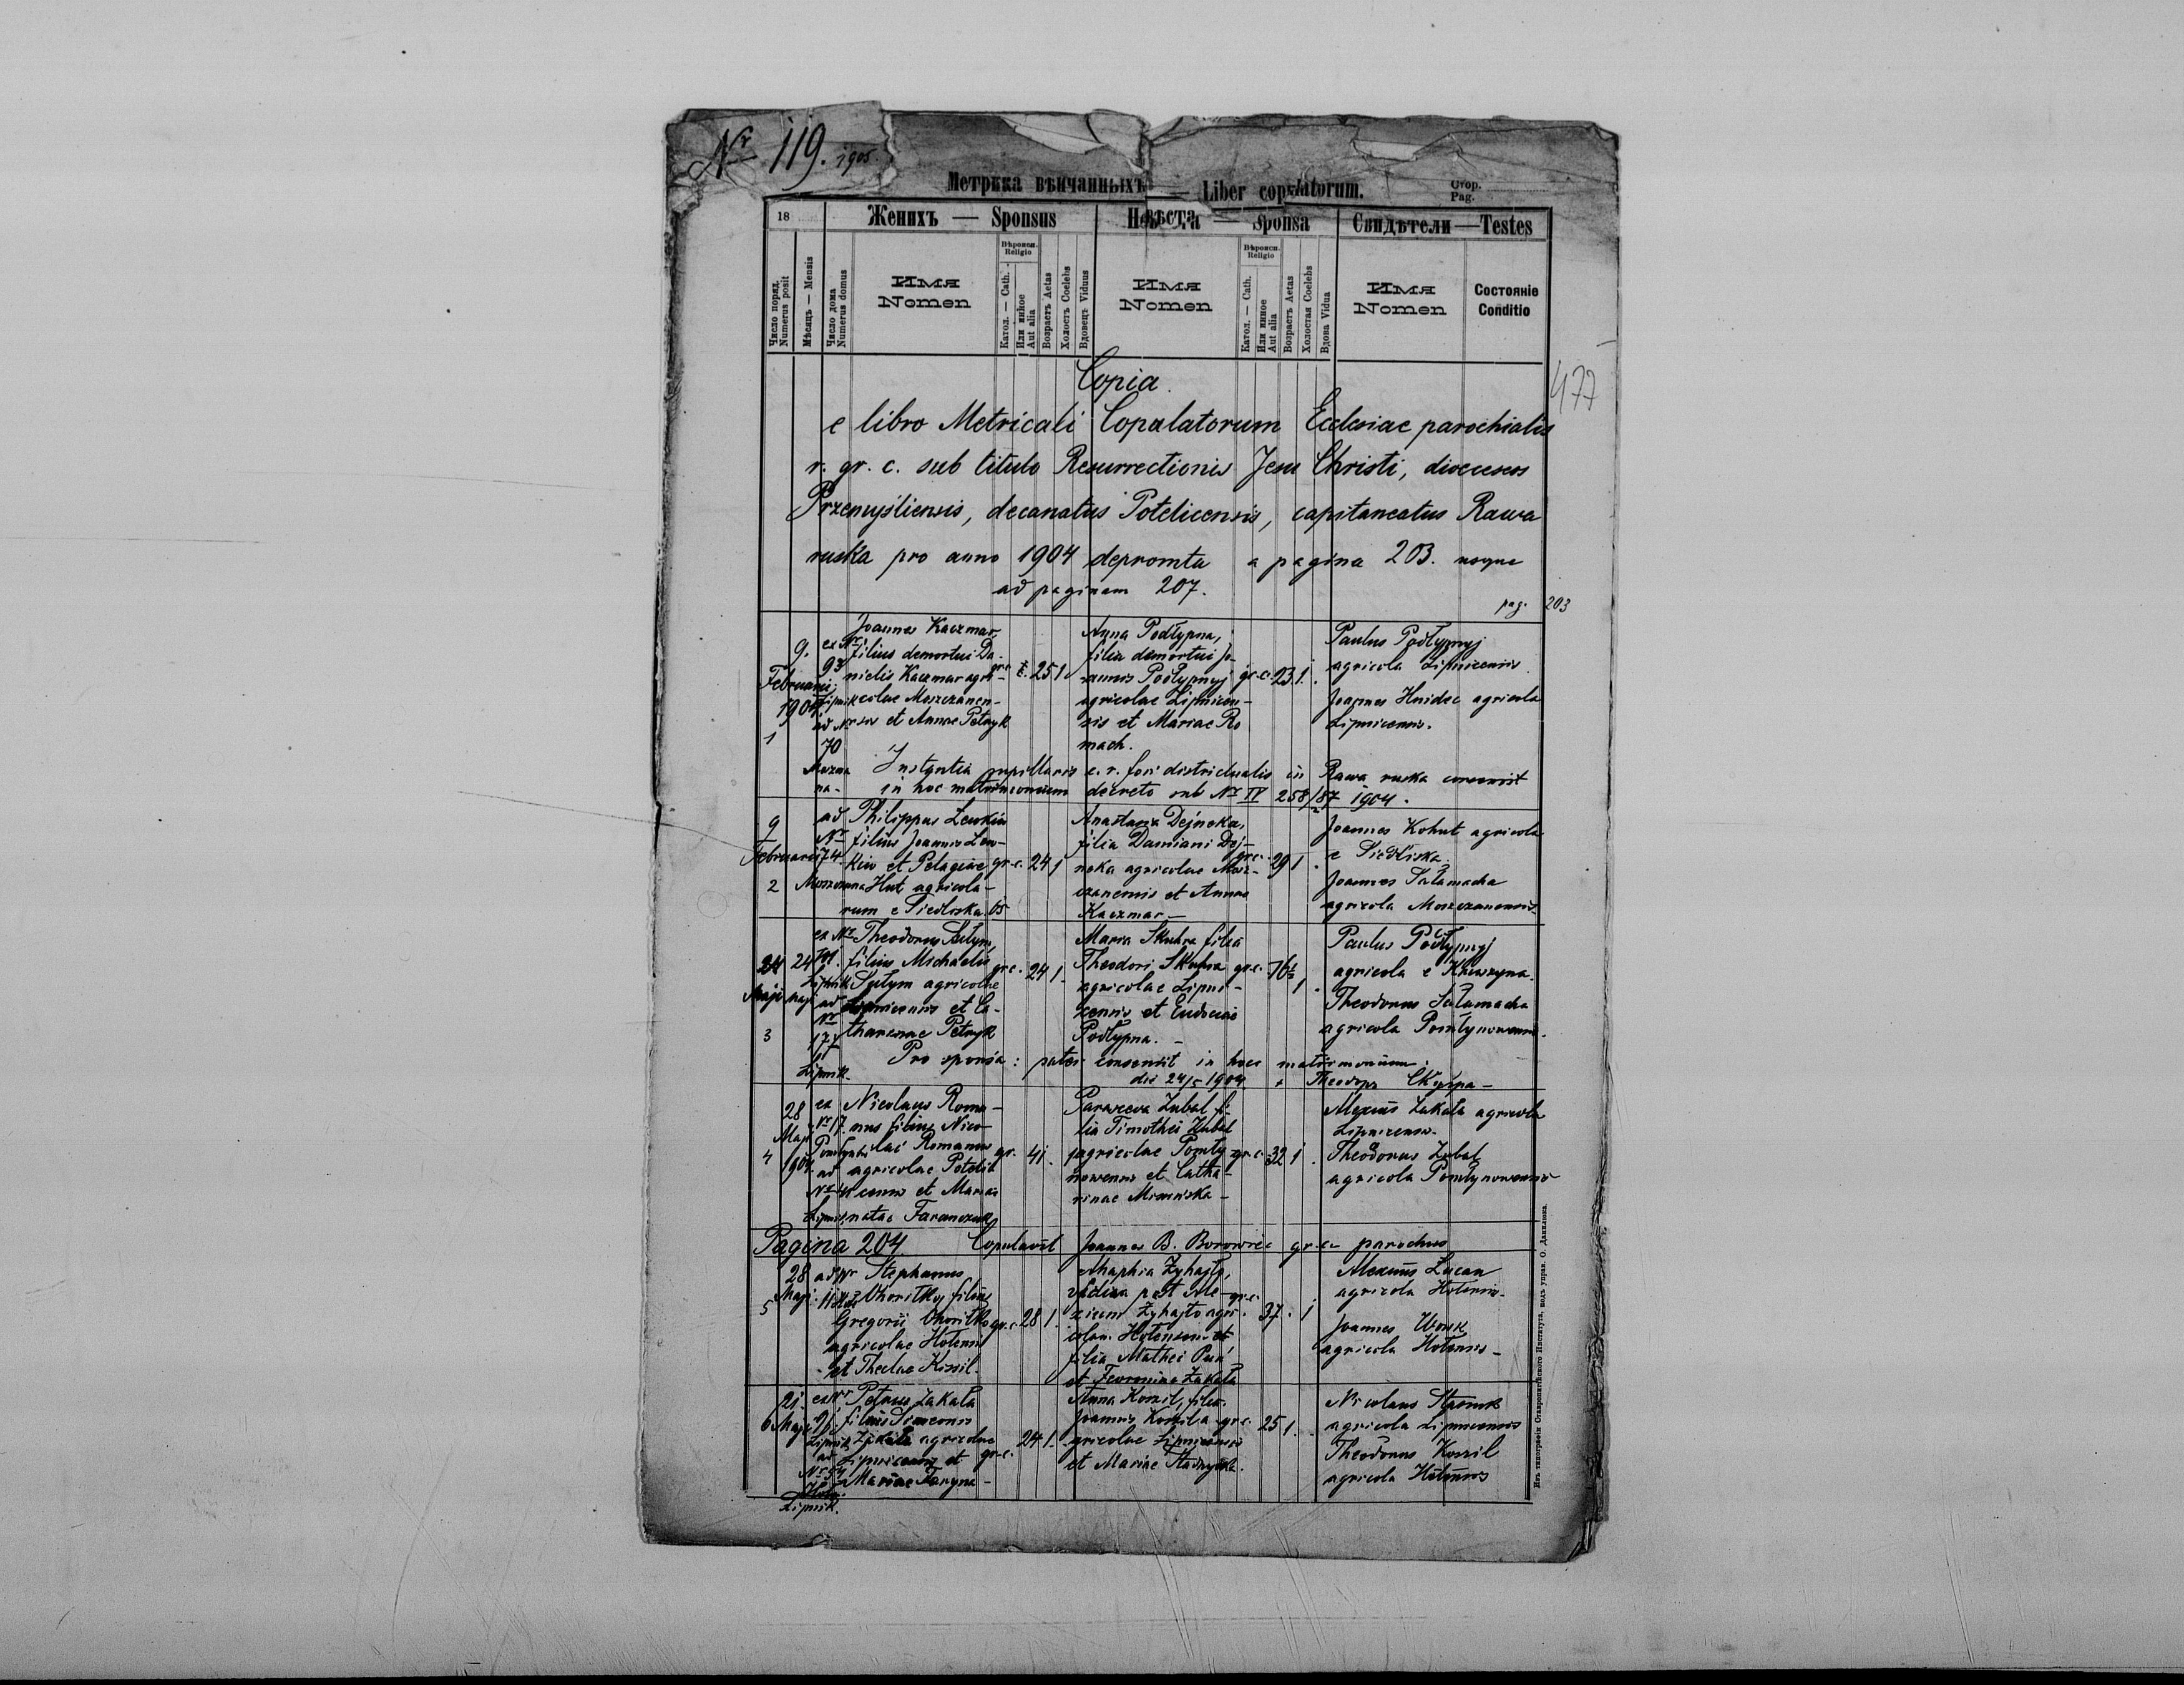 Nr 119. 1905
Метрика вѣнчанныхъ — Liber copulatorum.
Стор.
Pag.
18
Женихъ — Sponsus
Невѣста — Sponsa
Свидѣтели — Testes
Число поряд.
Numerus posit
Мѣсяцъ — Mensis
Число дома
Numerus domus
Имя
Nomen
Вѣроисп.
Religio
Катол. — Cath.
Или инное
Aut alia
Возрастъ Aetas
Холостъ Coelebs
Вдовецъ Viduus
Имя
Nomen
Вѣроисп.
Religio
Катол. — Cath.
Или инное
Aut alia
Возрастъ Aetas
Холостая Coelebs
Вдова Vidua
Имя
Nomen
Состояніе
Conditio
477
Copia
e libro Metricali Copulatorum Ecclesiae parochialis
r. gr. c. sub titulo Resurrectionis Jesu Christi, dioeceseos
Przemysliensis, decanatus Potelicensis, capitaneatus Rawa
ruska pro anno 1904 depromta a pagina 203. usque
ad paginam 207.
pag. 203
9.
Februarii
1904
1
ex Nr
93
Lipnik
ad Nr
70
Moszcza
na-
Joannes Kaczmar,
filius demortui Da-
nielis Kaczmar agri-
colae Moszczanen-
sis et Annae Petryk
gr. c. 25 1
Anna Podłypna,
filia demortui Jo-
annis Podłypnyj
agricolae Lipnicen-
sis et Mariae Ro
mach.
gr. c. 23 1.
Paulus Podłypnyj
agricola Lipnicensis
Joannes Hnidec agricola
Lipnicensis.
Instantia pupillaris c. r. fori districtualis in Rawa ruska consensit
in hoc matrimonium decreto sub Nr IV 258/87 1904.
9
Februarii
2
ad
Nr
74
Moszczana
Philippus Lewkiw
filius Joannis Lew-
kiw et Pelagiae
Hut agricola-
rum e Siedliska 65
gr. c. 24 1
Anastasia Dejneka,
filia Damiani Dej-
neka agricolae Mosz-
czanensis et Annae
Kaczmar -
gr. c. 29 1.
Joannes Kohut agricola
e Siedliska.
Joannes Sałamacha
agricola Moszczanensis
24 24
Maji Maji
3
ex Nr
Lipnik
ad
Nr
Lipnik.
Theodorus
filius Michaelis
agricolae
Lipnicensis et Ca-
tharinae Petryk
gr. c. 24 1.
Maria Skuhra filia
Theodori Skuhra
agricolae Lipni-
censis et Eudociae
Podłypna. -
gr. c. 1.
Paulus Podłypnyj
agricola e
Theodorus Sałamacha
agricola Pomłynowensis.
Pro sponsa: pater consensit in hoc matrimonium.
die 24/5 1904 + Theodor
28
Maji
4
1904
ex
Nr 17.
ad
Nicolaus Roma-
nus filius Nico-
lai Romanus
agricolae Potelit
censis et Mariae
natae
gr. 41.
Parascewa Zubal fi-
lia Timothei Zubal
agricolae Pomły-
nowensis et Catha-
rinae
gr. c. 32 1.
Alexius Zakała agricola
Lipnicensis.
Theodorus Zubal
agricola Pomłynowensis
Pagina 204 Copulavit Joannes B. Borowiec gr. c. parochus
28
Maji
5
ad Nr
Stephanus
filius
Gregorii
agricolae Hotensis
et Theclae Kozil.
gr. c. 28 1.
Maphia Zyhajło,
vidua post Ale-
xium Zyhajło agri-
colam Hotensem et
filia Mathei
et Zakała
gr. c. 37. 1
Alexius Lucan
agricola Hotensis.
Joannes
agricola Hotensis -
21.
6 Maji
ex Nr
Lipnik
ad
Nr 54
Lipnik.
Petrus Zakała
filius Simeonis
Zakała agricolae
Lipnicensis et
Mariae
gr. c. 24 1.
Anna Kozil, filia
Joannis Kozil a-
gricolae Lipnicensis
et Mariae
gr. c. 25 1.
Nicolaus
agricola Lipnicensis
Theodorus Kozil
agricola Hotensis
Изъ типографіи Ставропигійского Института, подъ управ. О. Данилюка.